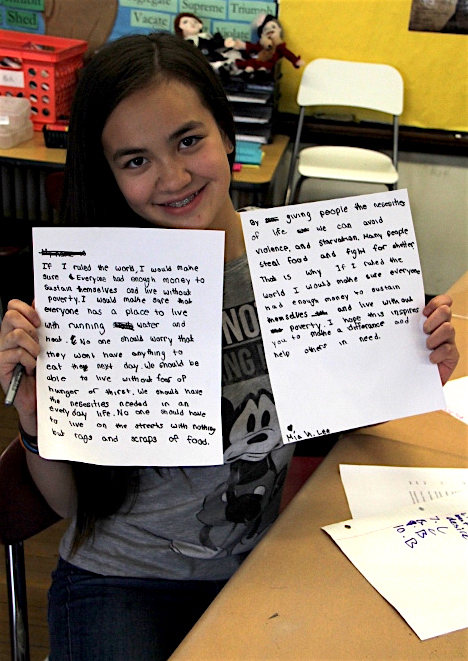 Shed
Vacate
Supreme
Triumph
Violate
If I ruled the world, I would make
sure Everyone had enough money to
sustain themselves and live without
poverty. I would make sure that
everyone has a place to live
with running water and
heat. No one should worry that
they wont have anything to
eat the next day. We should be
able to live without fear of
hunger of thirst. We should have
the necesities needed in an
every day life. No one should have
to live on the streets with nothing
but rags and scraps of food.
By giving people the necesities
of life we can avoid
violence, and starvation. Many people
steal food and fight for shelter
That is why If I ruled the
world I would make sure everyone
had enough money to sustain
themselves and live with out
poverty. I hope this inspires
you to make a difference and
help others in need.
Mia H. Lee
NO
7. U
8. B
10. B